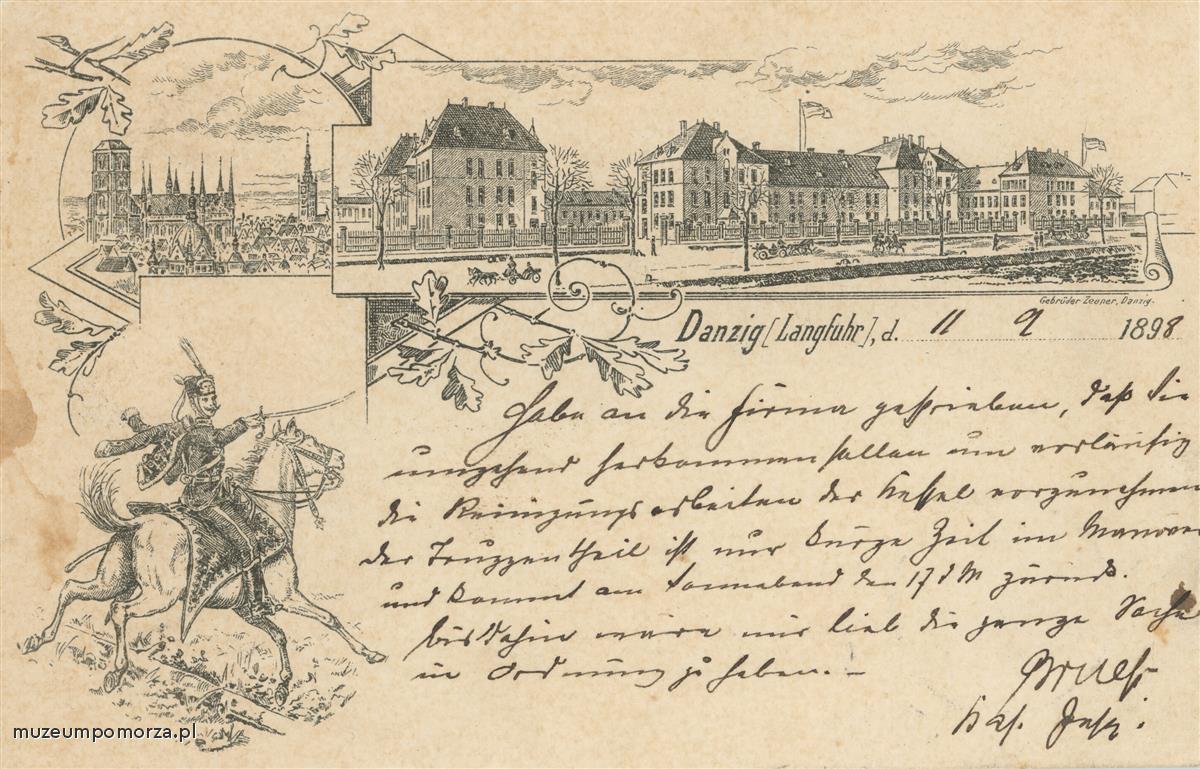 Gebrüder Zeuner, Danzig.
Danzig [Langfuhr], d. 11 9 1898
Habe an die Firma geschrieben, daß Sie
umgehend herkommen sollen um vorläufig
die Reinigungsarbeiten der Kessel vorzunehmen
der Truppentheil ist nur kurze Zeit im Manöver
und kommt am Sonnabend den 17 d M zurück.
bis dahin wäre mir lieb die ganze Sache
in Ordnung zu haben. –
Kas. Insp.
muzeumpomorza.pl